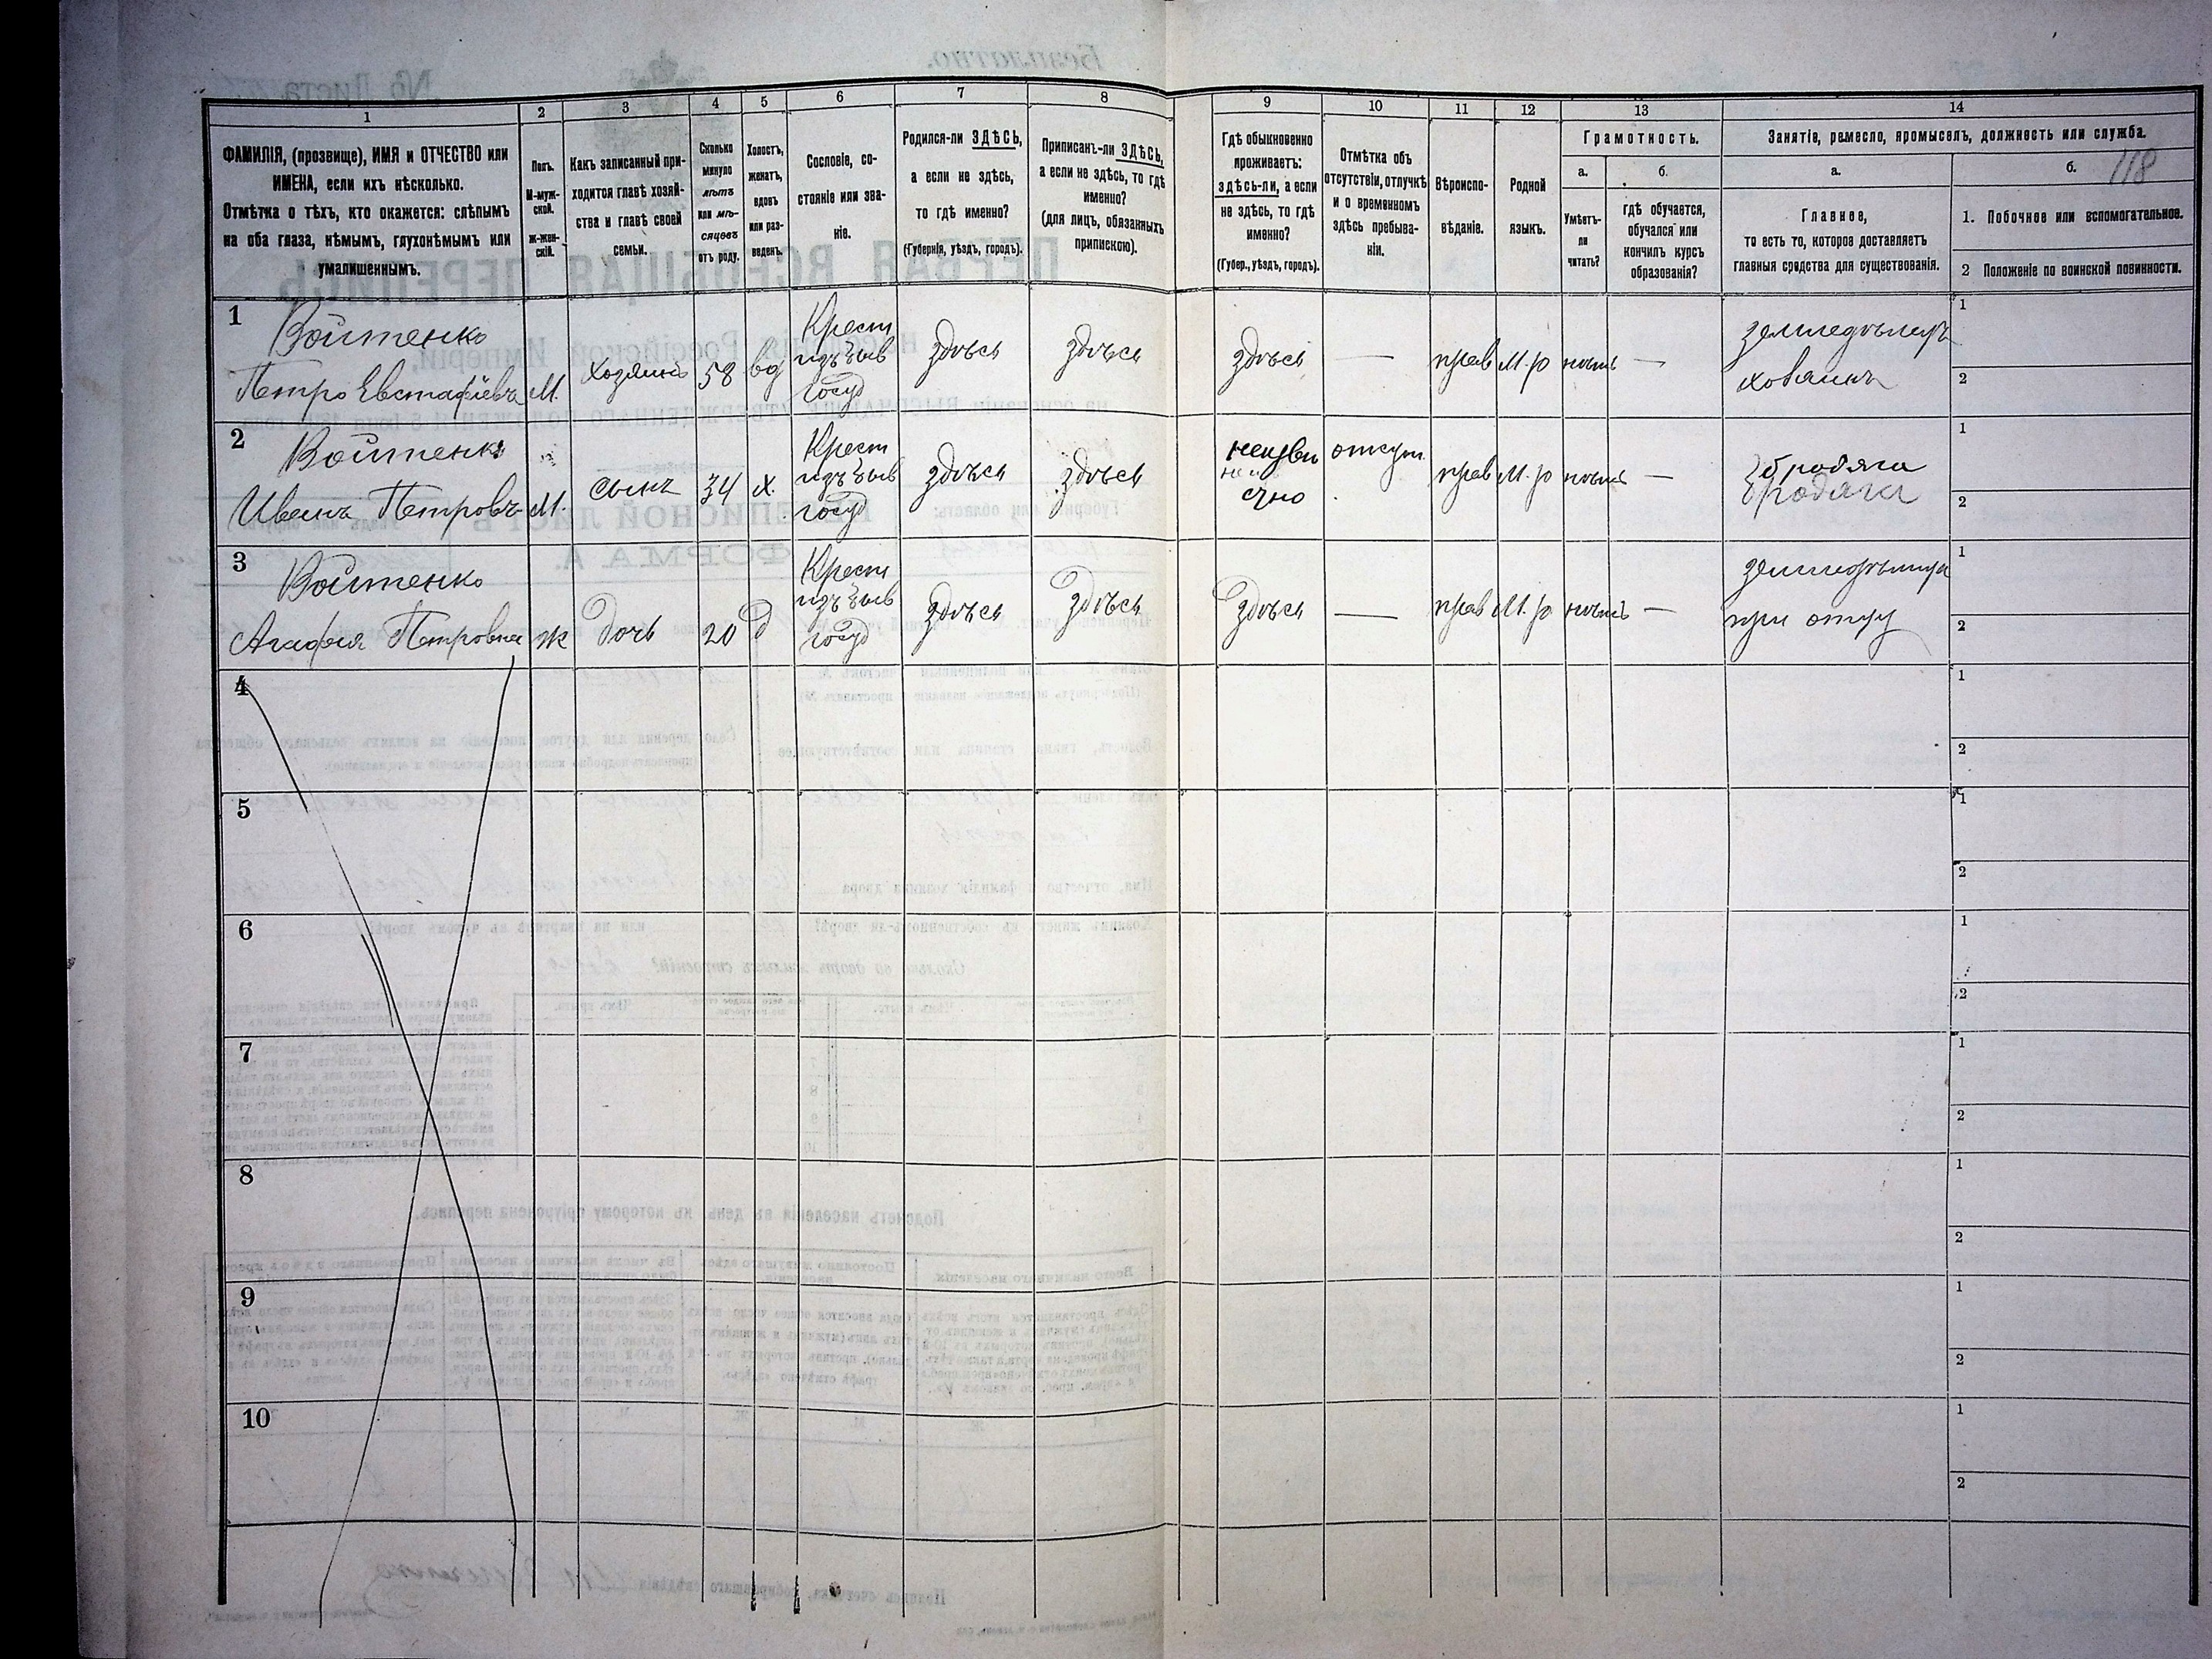 118
1
2
3
4
5
6
7
8
9
10
11
12
13
14
ФАМИЛІЯ, (прозвище), ИМЯ и ОТЧЕСТВО или
ИМЕНА, если ихъ нѣсколько.
Отмѣтка о тѣхъ, кто окажется: слѣпымъ
на оба глаза, нѣмымъ, глухонѣмымъ или
умалишеннымъ.
Полъ.
М-муж-
ской.
ж-жен-
скій.
Какъ записанный при-
ходится главѣ хозяй-
ства и главѣ своей
семьи.
Сколько
минуло
лѣтъ
или мѣ-
сяцевъ
отъ роду.
Холостъ,
женатъ,
вдовъ
или раз-
веденъ.
Сословіе, со-
стояніе или зва-
ніе.
Родился-ли ЗДѢСЬ,
а если не здѣсь,
то гдѣ именно?
(Губернія, уѣздъ, городъ).
Приписанъ-ли ЗДѢСЬ,
а если не здѣсь, то гдѣ
именно?
(для лицъ, обязанныхъ
припискою).
Гдѣ обыкновенно
проживаетъ:
здѣсь-ли, а если
не здѣсь, то гдѣ
именно?
(Губер., уѣздъ, городъ).
Отмѣтка объ
отсутствіи, отлучкѣ
и о временномъ
здѣсь пребыва-
ніи.
Вѣроиспо-
вѣданіе.
Родной
языкъ.
Грамотность.
а.
Умѣетъ-
ли
читать?
б.
гдѣ обучается,
обучался или
кончилъ курсъ
образованія?
Занятіе, ремесло, промыселъ, должность или служба.
а.
Главное,
то есть то, которое доставляетъ
главныя средства для существованія.
б.
1. Побочное или вспомогательное.
2 Положеніе по воинской повинности.
1
Войтенко
Петро Евстафіевъ М. хозяинъ 58 вд
Крест
изъ быв
госуд
здѣсь здѣсь здѣсь — прав М. р нѣтъ —
земледѣлецъ
хозяинъ
1
2
2
Войтенко
Иванъ Петровъ М. сынъ 34 х.
Крест
изъ быв
госуд
здѣсь здѣсь
неизвѣ
стно
отсут. прав М. р нѣтъ —
бродяга
бродяга
1
2
3
Войтенко
Агафия Петровна ж дочь 20 д
Крест
изъ быв
госуд
здѣсь здѣсь здѣсь — прав М. р нѣтъ —
при отцу
1
2
4
1
2
5
1
2
6
1
2
7
1
2
8
1
2
9
1
2
10
1
2